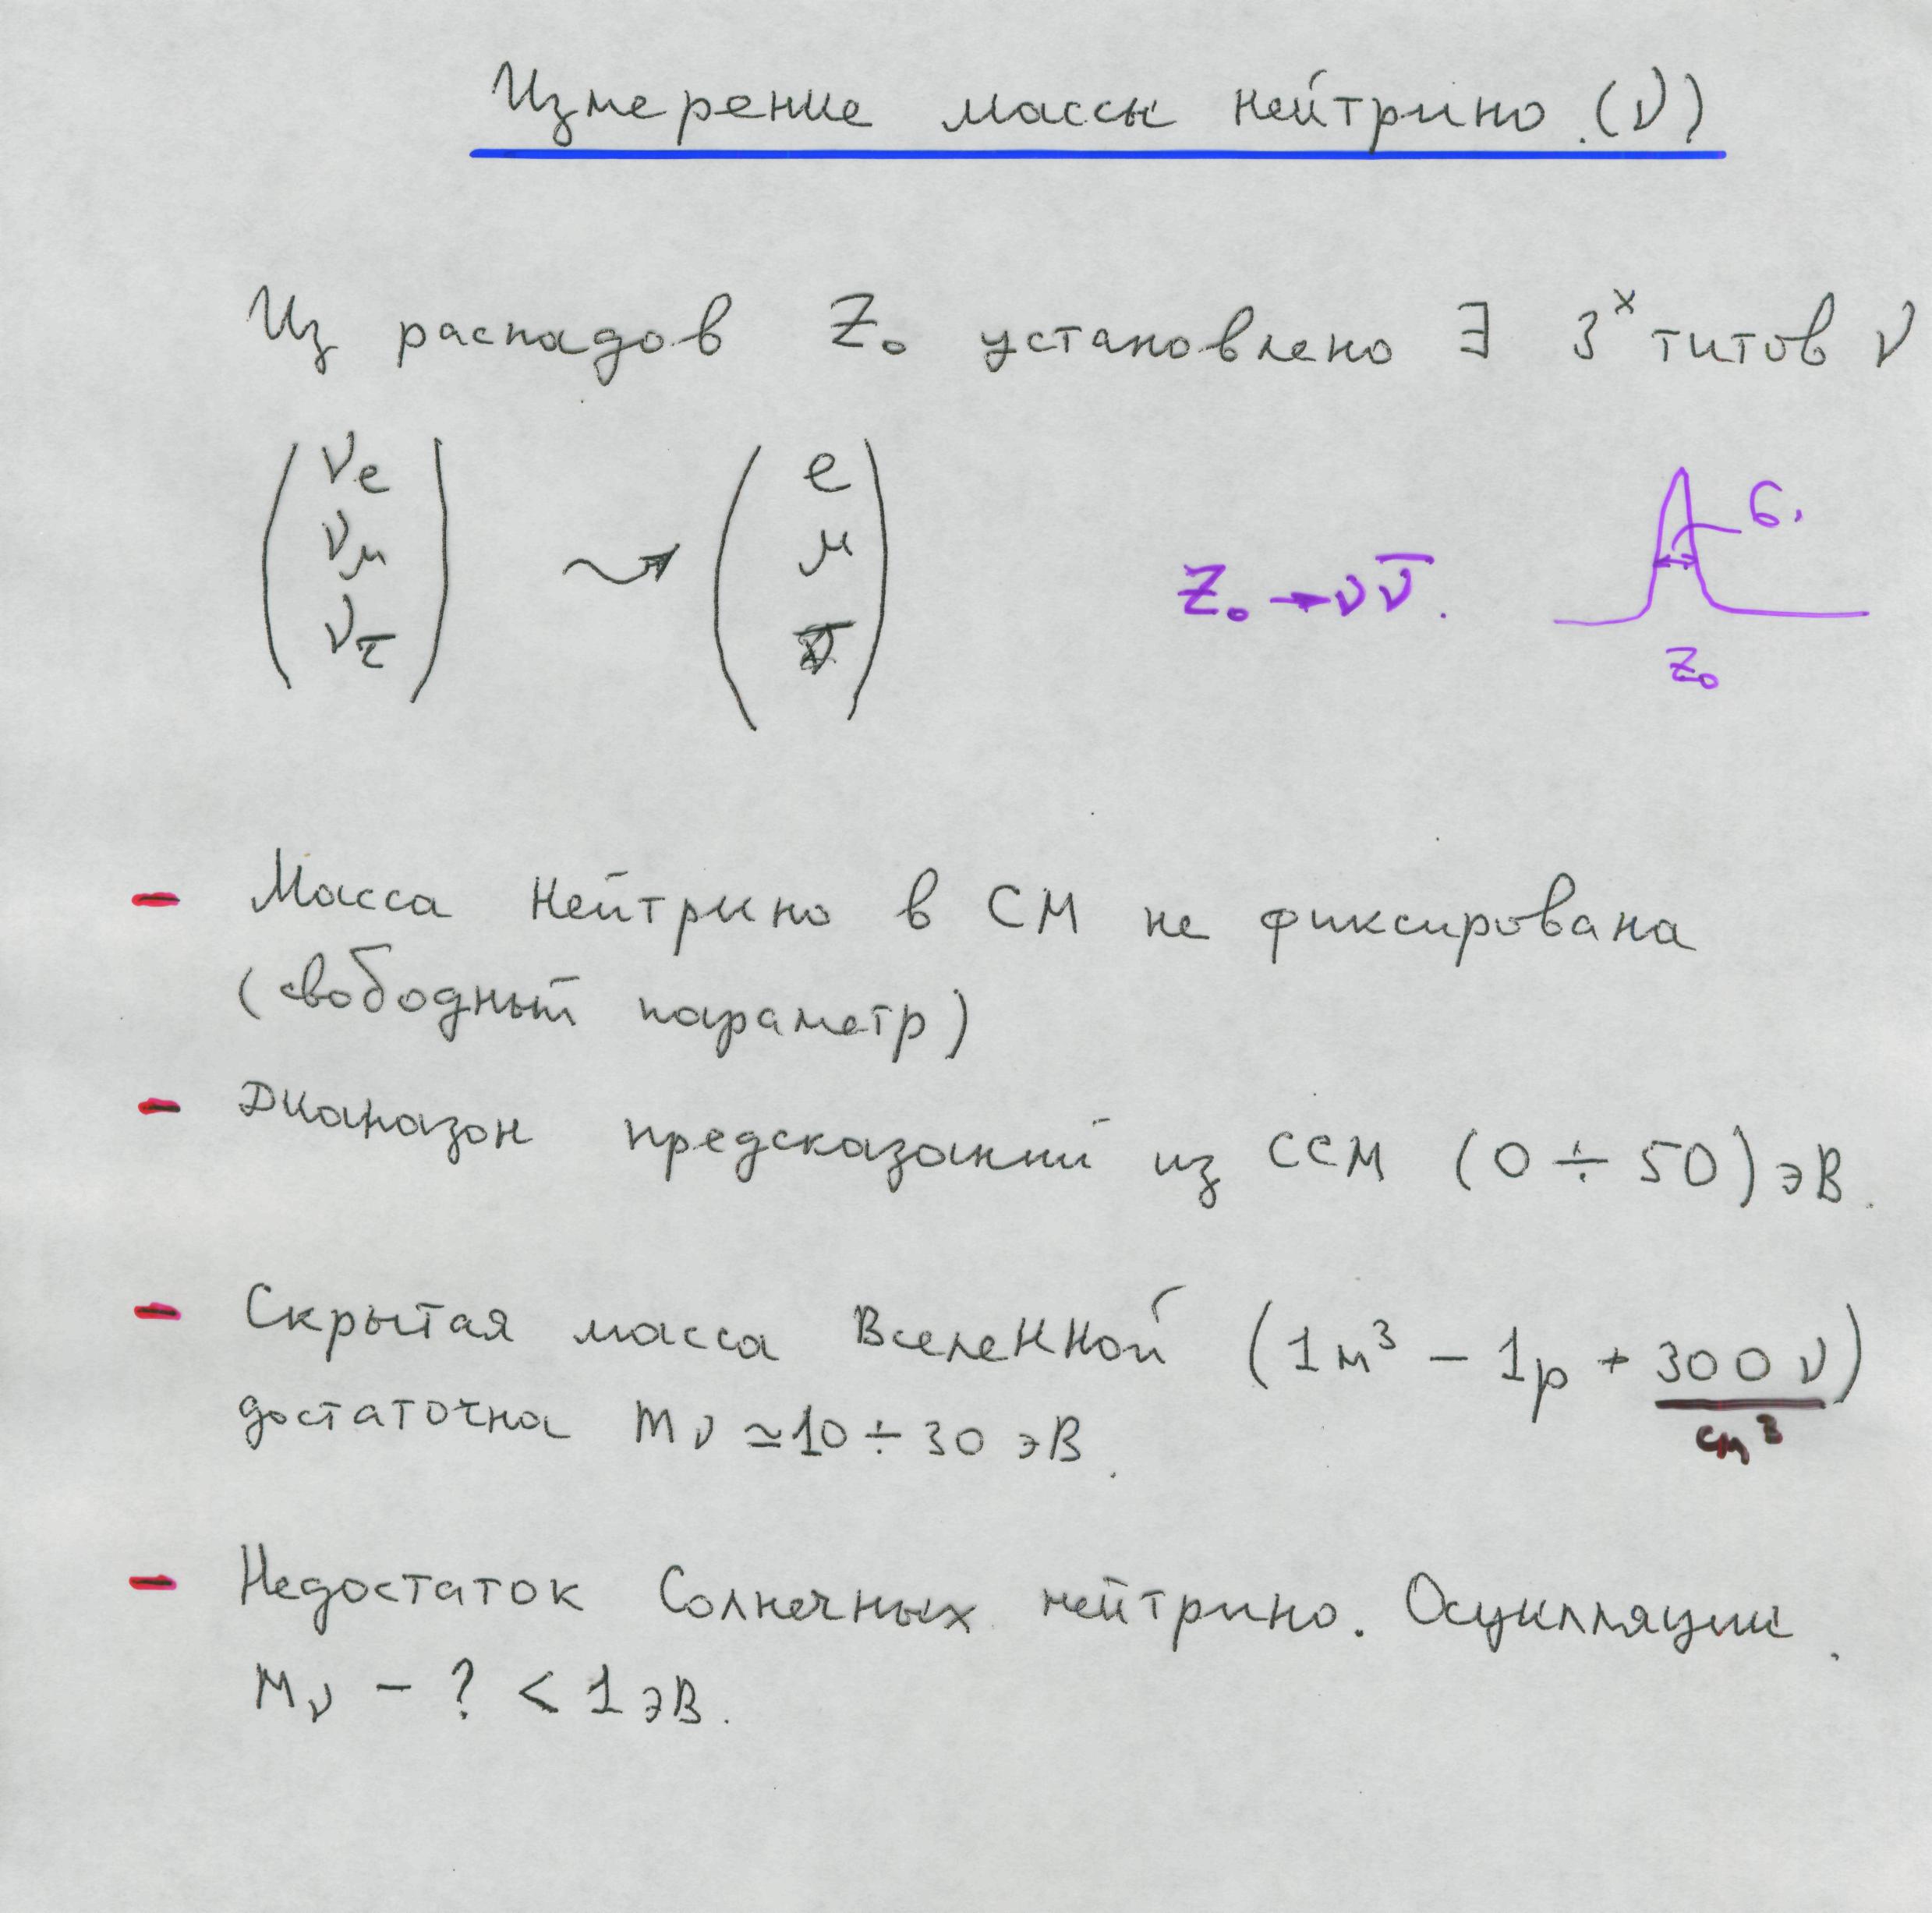 Измерение массы нейтрино. (ν)
Из распадов Z₀ установлено ∃ 3ˣ титов ν
νe
νμ
ντ
e
μ
Z₀ → ν ν̄.
σ.
Z₀
- Масса Нейтрино в СМ не фиксирована
(свободный параметр)
- Диапазон предсказаний из ССМ (0 ÷ 50) эВ.
- Скрытая масса Вселенной (1м³ - 1p + 300 ν)
см³
достаточна mν ≃ 10 ÷ 30 эВ.
- Недостаток Солнечных нейтрино. Осцилляции.
Mν - ? < 1 эВ.